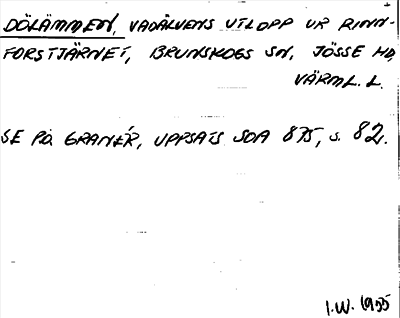 DÖLÄMMEN, VADÄLVENS UTLOPP UR RINN-
FORSTJÄRNET, BRUNSKOGS SN, JÖSSE HD,
VÄRML. L.
SE P.O. GRANÉR, UPPSATS SOA 875, S. 82.
I.W. 1955